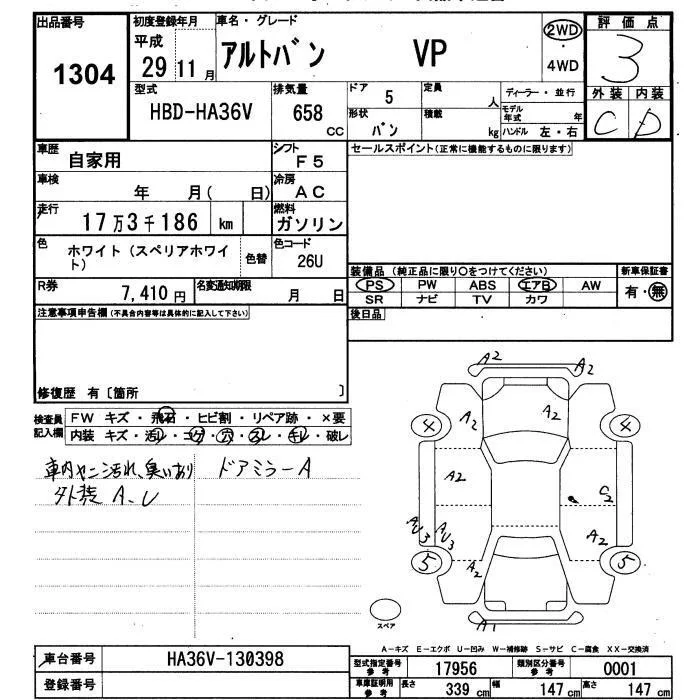 出品番号
1304
初度登録年月
平成
29 11月
車名・グレード
アルトバン VP
2WD
4WD
評価点
3
外装 内装
C D
型式
HBD-HA36V
排気量
658
cc
ドア 5
形状
バン
定員
人
積載
kg
ディーラー・並行
モデル
年式 年
ハンドル 左・右
車歴
自家用
シフト
F5
車検
年 月( 日)
冷房
AC
走行
17万3千186 km
燃料
ガソリン
色
ホワイト(スペリアホワイ
ト)
色替
色コード
26U
R券
7,410円
名変通知期限
月 日
セールスポイント(正常に機能するものに限ります)
装備品(純正品に限り○をつけてください)
新車保証書
PS PW ABS エアB AW
有・無
SR ナビ TV カワ
後日品
注意事項申告欄(不具合内容等は具体的に記入して下さい)
修復歴 有〔箇所 〕
検査員
記入欄
FW キズ・飛石・ヒビ割・リペア跡・×要
内装 キズ・汚レ・コゲ・穴・スレ・キレ・破レ
車内ヤニ汚れ、臭いあり
外装 A、U
ドアミラーA
A2
A2
A2
A2
4
4
A2
S2
AU3
AU3
A2
A2
5
5
A1
スペア
A-キズ E-エクボ U-凹み W-補修跡 S-サビ C-腐食 XX-交換済
車台番号
HA36V-130398
登録番号
型式指定番号
参考
17956
類別区分番号
参考
0001
車庫証明用
参考
長さ 339cm
幅 147cm
高さ 147cm